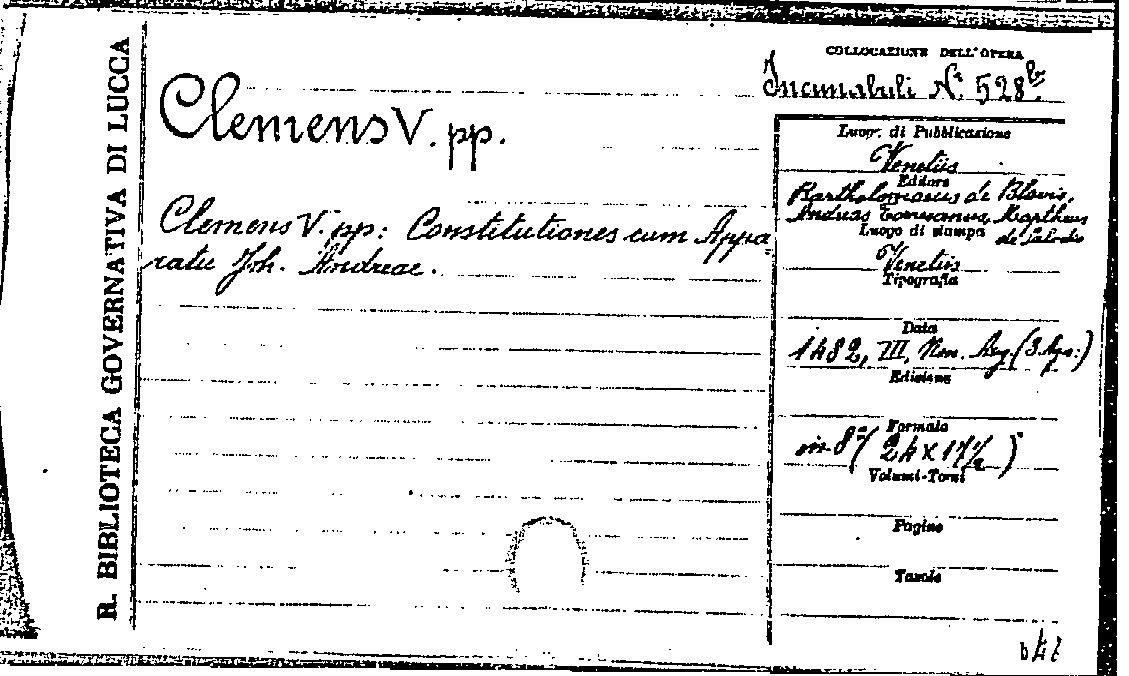 R. BIBLIOTECA GOVERNATIVA DI LUCCA
COLLOCAZIONE DELL'OPERA
Incunabuli N.° 528
Clemens V. pp.
Clemens V. pp: Constitutiones cum Appa
ratu Joh. Andreae.
Luogo di Pubblicazione
Venetiis
Editore
Bartholomaeus de Blavis,
Andreas Torresanus, Maptheus
de Salodio
Luogo di stampa
Venetiis
Tipografia
Data
1482, III, Non. Aug. (3 Ago:)
Edizione
Formato
in 8° (24 x 17½)
Volumi-Tomi
Pagine
Tavole